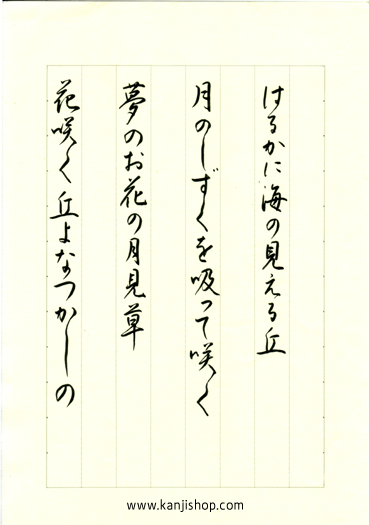 はるかに海の見える丘
月のしずくを吸って咲く
夢のお花の月見草
花咲く丘よなつかしの
www.kanjishop.com